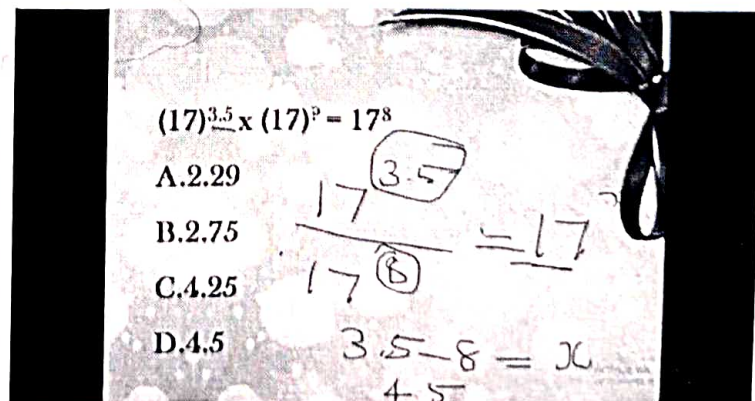 (17)³·⁵ x (17)ˀ = 17⁸
A.2.29
B.2.75
C.4.25
D.4.5
17³·⁵
17⁸
= 17ˀ
3.5-8 = x
4.5